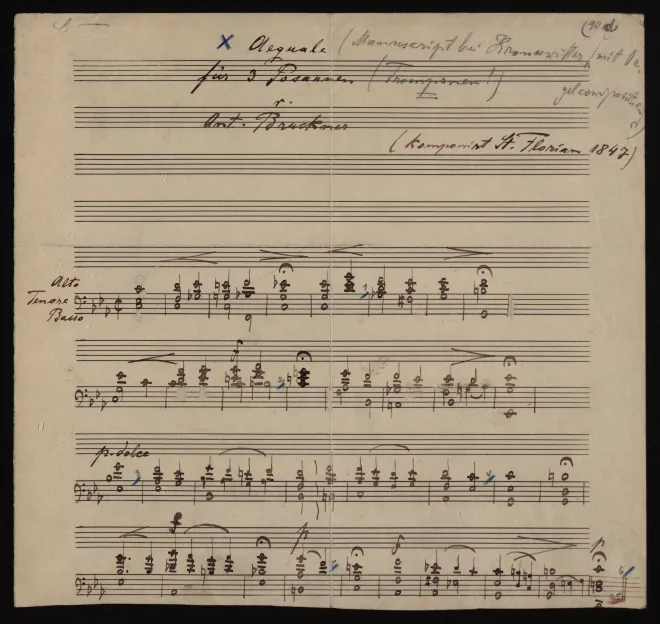 Aequale (Manuscript bei Kronawitter, mit Or-
gelcomposition
für 3 Posaunen (Tromponen!)
v.
Ant. Bruckner
(komponirt St. Florian 1847)
Alto
Tenore
Basso
f
p. dolce
p
f